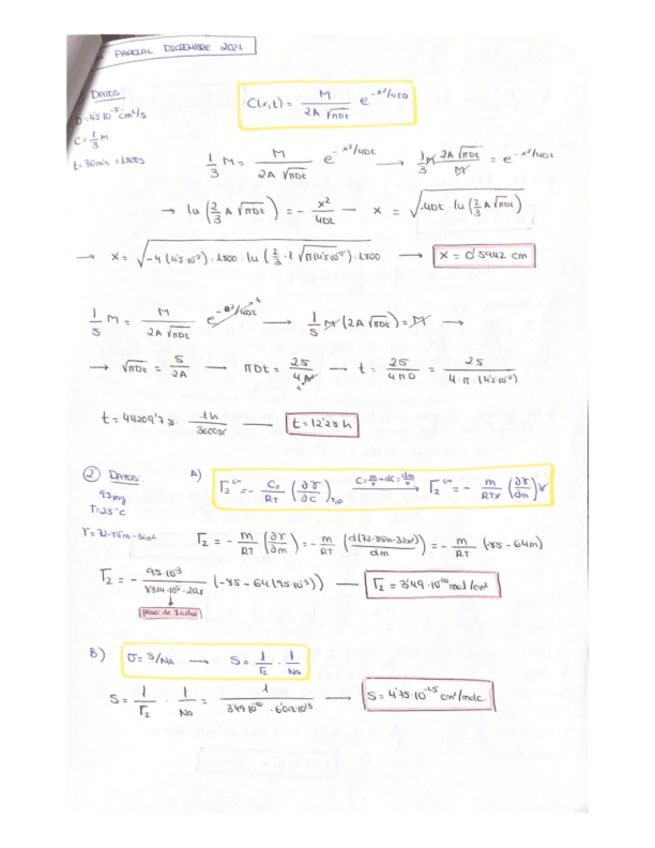 PARCIAL DICIEMBRE 2021
DATOS:
D=4'5·10⁻⁵ cm²/s
C=1/3 M
t=30min=1800s
C(x,t) = M/(2A √πDt) e^(-x²/4tD)
1/3 M = M/(2A √πDt) e^(-x²/4Dt) → 1/3 M 2A √πDt / M = e^(-x²/4Dt)
→ ln(2/3 A √πDt) = - x²/4Dt — x = √(-4Dt · ln(2/3 A √πDt))
→ x = √(-4(4'5·10⁻⁵)·1800 · ln(2/3 · 1 √π(4'5·10⁻⁵)·1800 → x = 0'5942 cm
1/5 M = M/(2A √πDt) e^(-0²/4Dt) → 1/5 M (2A √πDt) = M →
→ √πDt = 5/2A — πDt = 25/4A² — t = 25/4πD = 25/(4·π·(4'5·10⁻⁵)
t = 44209'7 s · 1h/3600s → t = 12'28 h
② DATOS: A) Γ₂ = - C₂/RT (∂γ/∂C)T,P C=m/v → dC=dm/v → Γ₂ = - m/RTV (∂γ/∂m) V
95mg
T=25°C
γ=72-85m-32m² Γ₂ = - m/RT (∂γ/∂m) = - m/RT (d(72-85m-32m²)/dm) = - m/RT (-85-64m)
Γ₂ = - 95·10⁻³/8'314·10⁷·298 (-85-64(95·10⁻³)) → Γ₂ = 3'49·10⁻¹⁰ mol/cm²
B) σ=S/NA → S = 1/Γ₂ · 1/NA
S = 1/Γ₂ · 1/NA = 1/(3'49·10⁻¹⁰ · 6'022·10²³) → S = 4'75·10⁻¹⁵ cm²/molec.